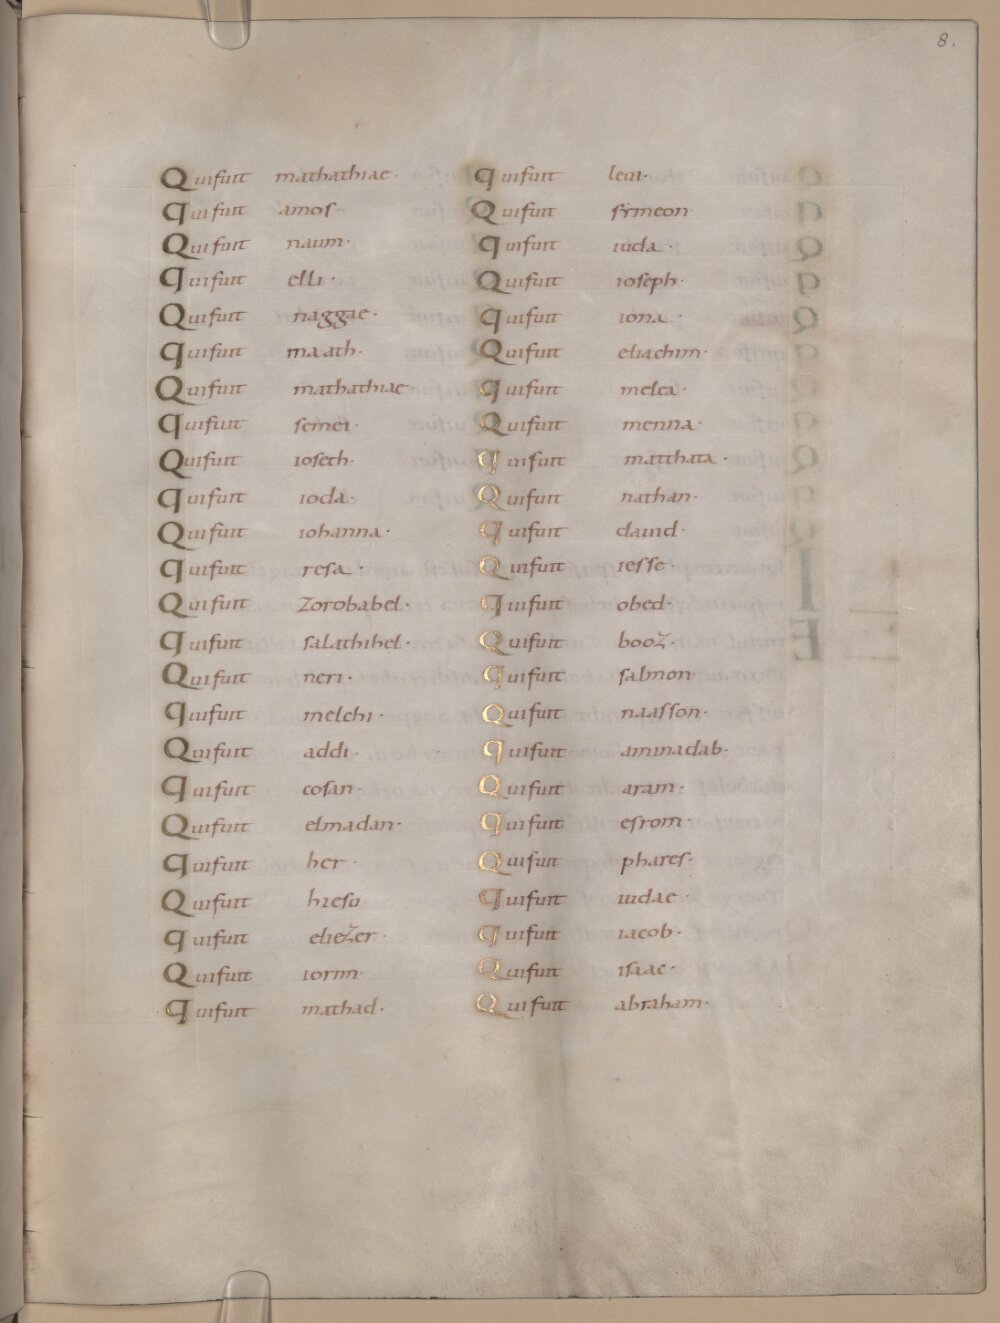 8.
Qui fuit mathathiae·
qui fuit amos·
Qui fuit naum·
qui fuit elli·
Qui fuit naggae·
qui fuit maath·
Qui fuit mathathiae·
qui fuit semei·
Qui fuit ioseth·
qui fuit ioda·
Qui fuit iohanna·
qui fuit resa·
Qui fuit zorobabel·
qui fuit salathihel·
Qui fuit neri·
qui fuit melchi·
Qui fuit addi·
qui fuit cosan·
Qui fuit elmadan·
qui fuit her·
Qui fuit hiesu
qui fuit eliezer·
Qui fuit iorim·
qui fuit mathad·
qui fuit levi·
Qui fuit symeon·
qui fuit iuda·
Qui fuit ioseph·
qui fuit iona·
Qui fuit eliachim·
qui fuit melea·
Qui fuit menna·
qui fuit matthata·
Qui fuit nathan·
qui fuit dauid·
Qui fuit iesse
qui fuit obed·
Qui fuit booz·
qui fuit salmon·
Qui fuit naasson·
qui fuit aminadab·
Qui fuit aram·
qui fuit esrom·
Qui fuit phares·
qui fuit iudae·
qui fuit iacob·
Qui fuit isaac·
Qui fuit abraham·